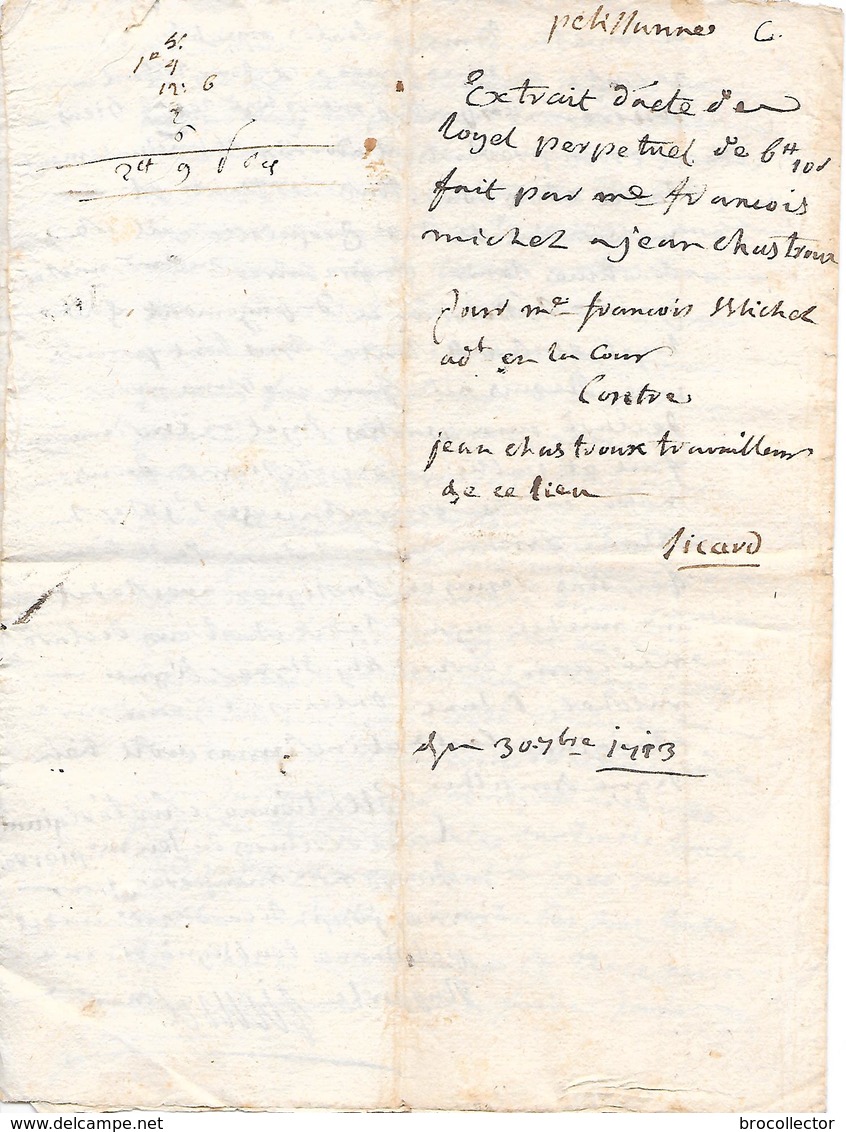 pelissanne C.
5.
1ª 4
12. 6
2
6
2tt 9
Extrait d'acte d'en
loyel perpetuel de 6tt 10d
fait par me francois
michel a jean chastroux
pour me francois Michel
adt en la Cour
Contre
jean chastroux travailleur
de ce lieu
Sicard
du 30 7bre 1783
brocollector